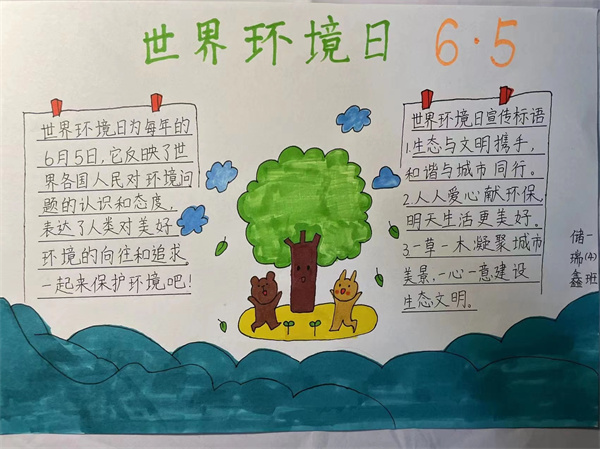 世界环境日 6·5
世界环境日为每年的
6月5日,它反映了世
界各国人民对环境问
题的认识和态度,
表达了人类对美好
环境的向往和追求
一起来保护环境吧!
世界环境日宣传标语
1.生态与文明携手,
和谐与城市同行。
2.人人爱心献环保,
明天生活更美好。
3.一草一木凝聚城市
美景,一心一意建设
生态文明。
一(4)班
储瑞鑫